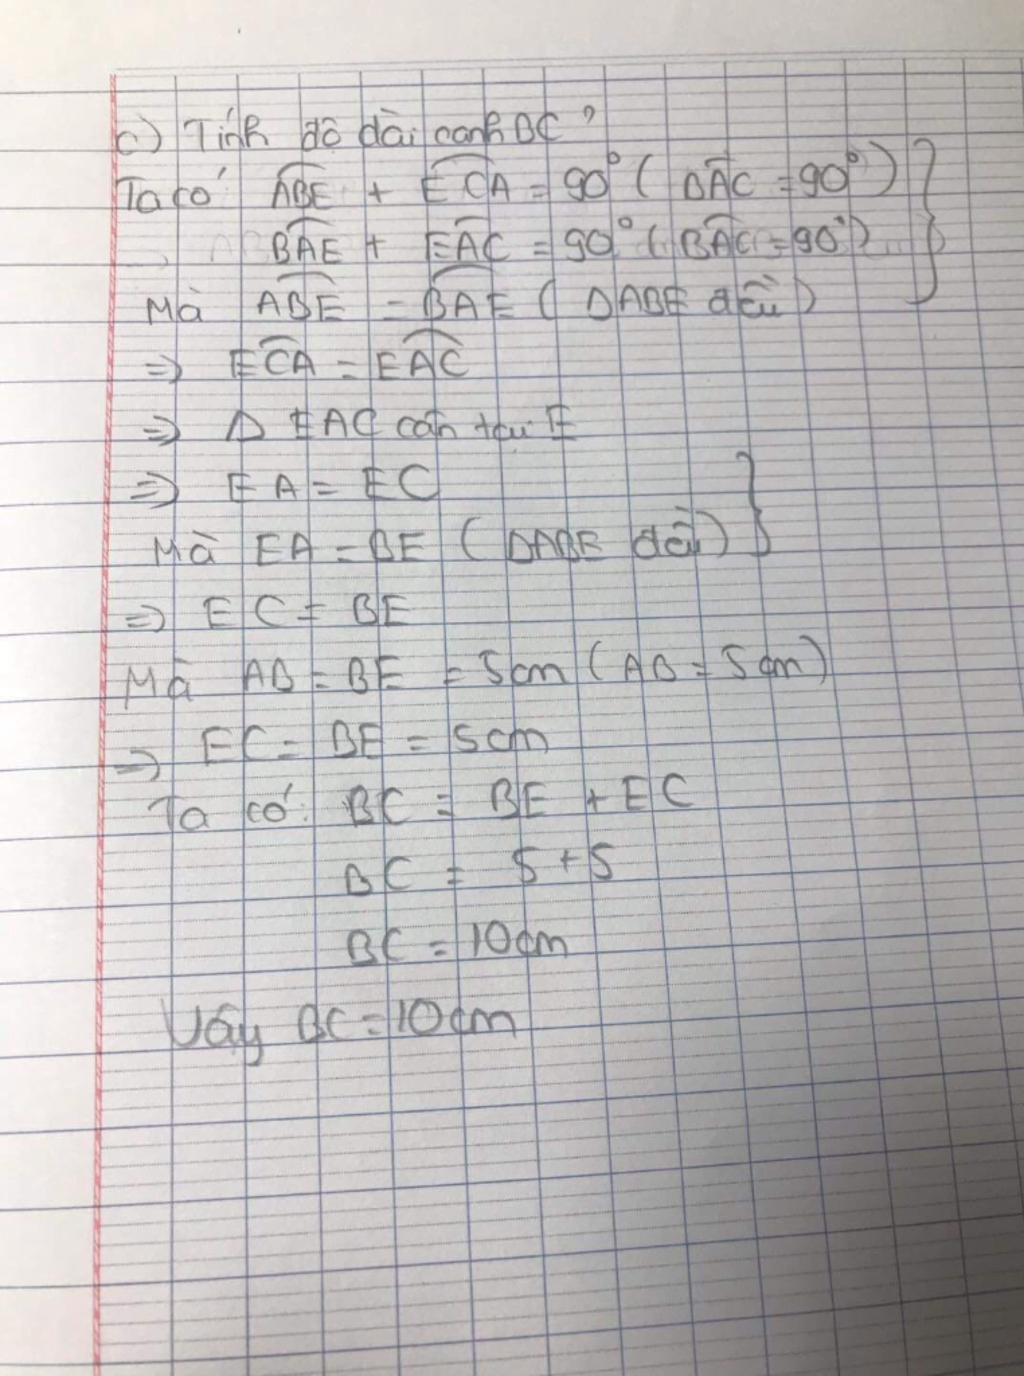 c) Tính độ dài cạnh BC?
Ta có ABE + ECA = 90° ( BAC = 90° )
BAE + EAC = 90° ( BAC = 90° )
Mà ABE = BAE ( ΔABE đều )
=> ECA = EAC
=> Δ EAC cân tại E
=> EA = EC
Mà EA = BE ( ΔABE đều )
=> EC = BE
Mà AB = BE = 5cm ( AB = 5cm )
=> EC = BE = 5cm
Ta có: BC = BE + EC
BC = 5 + 5
BC = 10cm
Vậy BC = 10cm